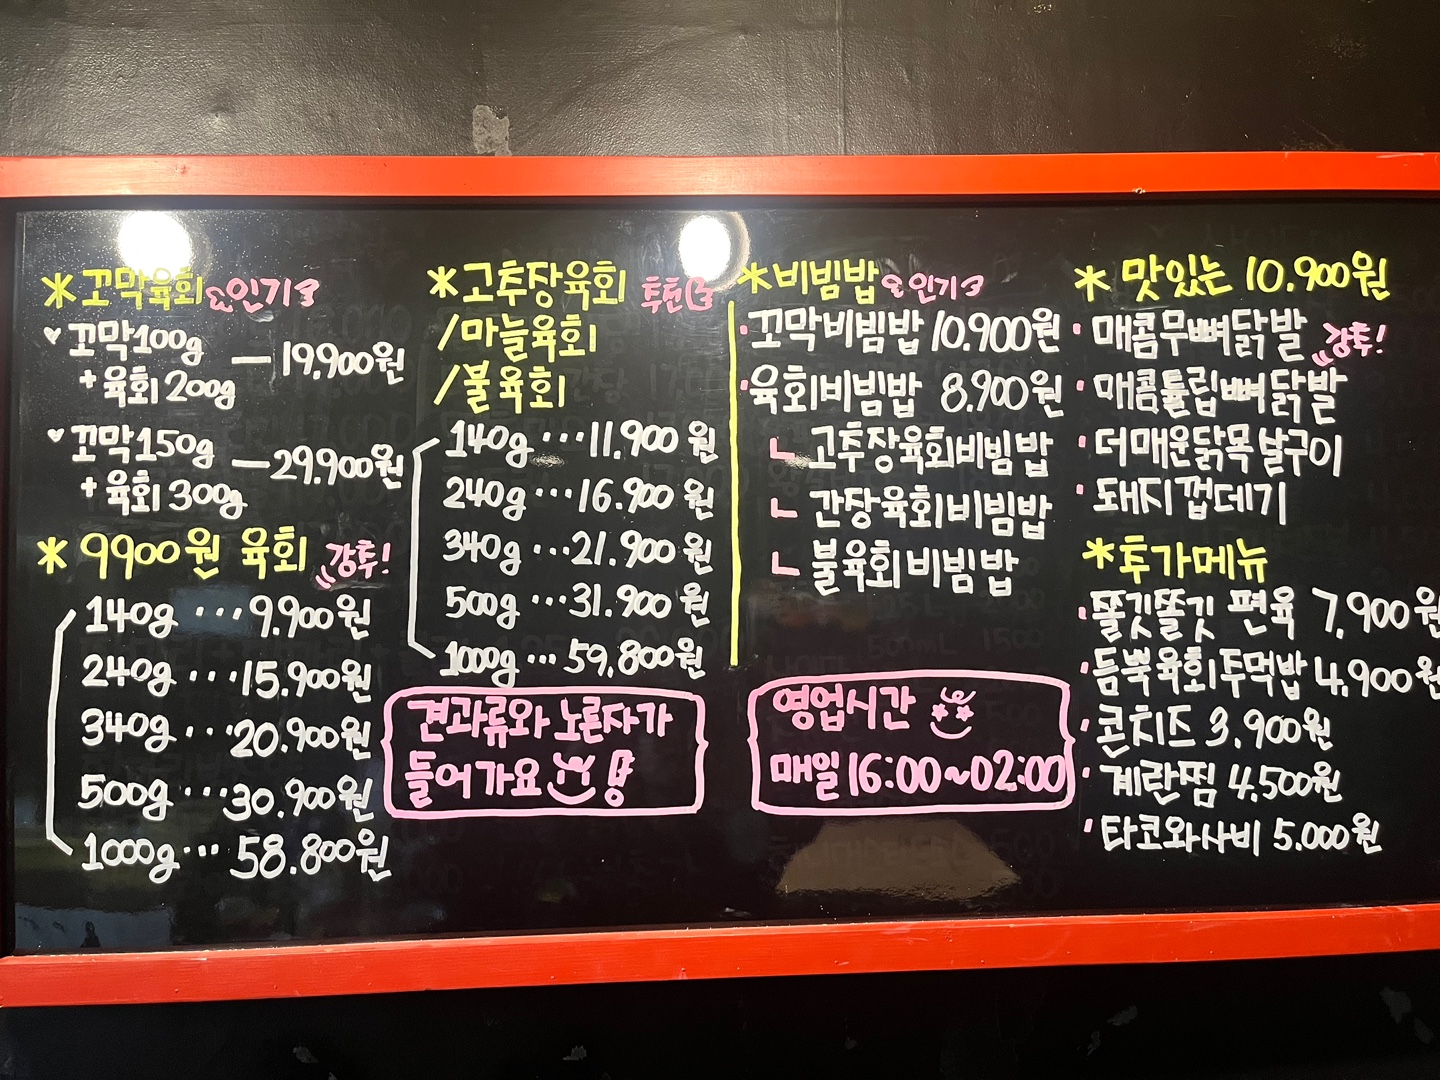 *꼬막육회 인기
꼬막100g
+육회200g — 19,900원
꼬막150g
+육회300g — 29,900원
*9900원 육회 강추!
140g ··· 9,900원
240g ··· 15,900원
340g ··· 20,900원
500g ··· 30,900원
1000g ··· 58,800원
*고추장육회 추천
/마늘육회
/불육회
140g ··· 11,900원
240g ··· 16,900원
340g ··· 21,900원
500g ··· 31,900원
1000g ··· 59,800원
견과류와 노른자가
들어가요 !
*비빔밥 인기
꼬막비빔밥 10,900원
육회비빔밥 8,900원
ㄴ 고추장육회비빔밥
ㄴ 간장육회비빔밥
ㄴ 불육회비빔밥
영업시간
매일 16:00~02:00
* 맛있는 10,900원
매콤무뼈닭발 강추!
매콤튤립뼈닭발
더매운닭목살구이
돼지껍데기
*추가메뉴
쫄깃쫄깃 편육 7,900원
듬뿍육회주먹밥 4,900원
콘치즈 3,900원
계란찜 4,500원
타코와사비 5,000원